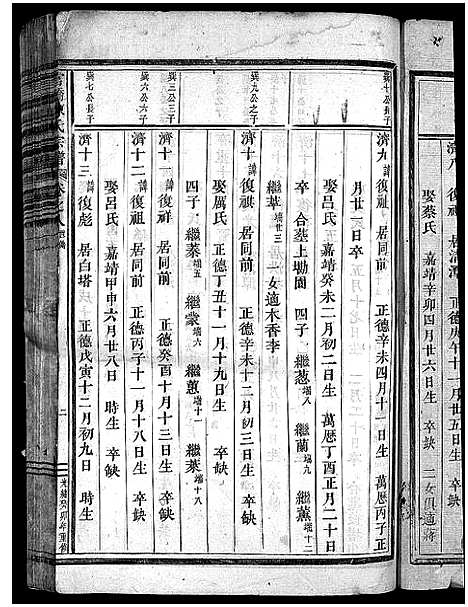 濟八 復祖 居滆濱 正德庚午十一月廿五日生 卒缺
娶蔡氏 嘉靖辛卯四月廿六日生 卒缺 二女俱適蔣
巽十公長子
濟九 諱 復祖 居同前 正德辛未四月十一日生 萬曆丙子正
月廿一日卒
娶呂氏 嘉靖癸未二月初二日生 萬曆丁酉正月二十日
卒 合塟上坳園 四子 繼葱 端八 繼蘭 端九 繼薰 端十二
繼莘 端廿三 一女適木香李
巽九公之子
濟十 諱 復祺 居同前 正德辛未十二月初三日生 卒缺
娶厲氏 正德丁丑十一月十九日生 卒缺
四子 繼蓁 端五 繼蒙 端六 繼蕙 端十一 繼葉 端十八
巽三公三子
濟十一 諱 復祥 居同前 正德癸酉十月十三日生 卒缺
巽六公六子
濟十二 諱 復祖 居同前 正德丙子十一月十八日生 卒缺
娶呂氏 嘉靖甲申六月廿八日 時生 卒缺
巽七公長子
濟十三 諱 復彪 居白塔 正德戊寅十二月初九日 時生
氏宗譜
二
光緒癸卯年重修